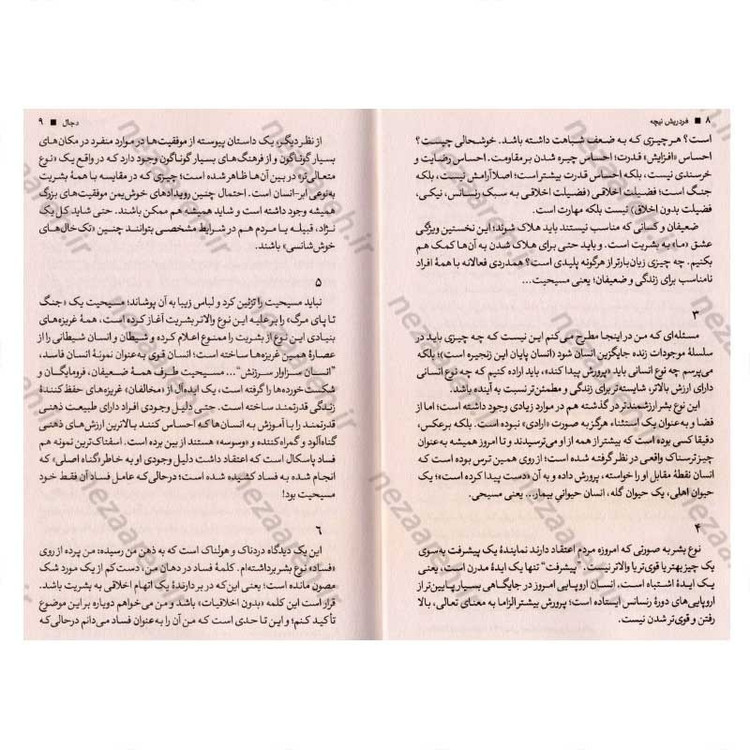 ۸ ■ فردریش نیچه
است؟ هر چیزی که به ضعف شباهت داشته باشد. خوشحالی چیست؟
احساس «افزایش» قدرت؛ احساس چیره شدن بر مقاومت. احساس رضایت و
خرسندی نیست، بلکه احساس قدرت بیشتر است؛ اصلا آرامش نیست، بلکه
جنگ است؛ فضیلت اخلاقی (فضیلت اخلاقی به سبک رنسانس، نیکی،
فضیلت بدون اخلاق) نیست بلکه مهارت است.
ضعیفان و کسانی که مناسب نیستند باید هلاک شوند؛ این نخستین ویژگی
عشق «ما» به بشریت است. و باید حتی برای هلاک شدن به آن‌ها کمک هم
بکنیم. چه چیزی زیان‌بارتر از هرگونه پلیدی است؟ همدردی فعالانه با همهٔ افراد
نامناسب برای زندگی و ضعیفان؛ یعنی مسیحیت...
۳
مسئله‌ای که من در اینجا مطرح می‌کنم این نیست که چه چیزی باید در
سلسلهٔ موجودات زنده جایگزین انسان شود (انسان پایان این زنجیره است)؛ بلکه
می‌پرسم چه نوع انسانی باید «پرورش پیدا کند»، باید اراده کنیم که چه نوع انسانی
دارای ارزش بالاتر، شایسته‌تر برای زندگی و مطمئن‌تر نسبت به آینده باشد.
این نوع بشر ارزشمندتر در گذشته هم در موارد زیادی وجود داشته است؛ اما از
قضا و به‌عنوان یک استثناء هرگز به صورت «ارادی» نبوده است. بلکه برعکس،
دقیقا کسی بوده است که بیشتر از همه از او می‌ترسیدند و تا امروز همیشه به‌عنوان
چیز ترسناک واقعی در نظر گرفته شده است؛ از روی همین ترس بوده است که
انسان نقطهٔ مقابل او را خواسته، پرورش داده و به آن «دست پیدا کرده است»؛ یک
حیوان اهلی، یک حیوان گله، انسان حیوانی بیمار... یعنی مسیحی.
۴
نوع بشر به صورتی که امروزه مردم اعتقاد دارند نمایندهٔ یک پیشرفت به‌سوی
یک چیز بهتر یا قوی‌تر یا والاتر نیست. "پیشرفت" تنها یک ایدهٔ مدرن است، یعنی
یک ایدهٔ اشتباه است. انسان اروپایی امروز در جایگاهی بسیار پایین‌تر از
اروپایی‌های دورهٔ رنسانس ایستاده است؛ پرورش بیشتر الزاما به معنای تعالی، بالا
رفتن و قوی‌تر شدن نیست.
دجال ■ ۹
از نظر دیگر، یک داستان پیوسته از موفقیت‌ها در موارد منفرد در مکان‌های
بسیار گوناگون و از فرهنگ‌های بسیار گوناگون وجود دارد که در واقع یک «نوع
متعالی‌تر» در بین آن‌ها ظاهر شده است؛ چیزی که در مقایسه با همهٔ بشریت
به‌نوعی ابر-انسان است. احتمال چنین رویدادهای خوش‌یمن موفقیت‌های بزرگ
همیشه وجود داشته است و شاید همیشه هم ممکن باشند. حتی شاید کل یک
نژاد، قبیله یا مردم هم در شرایط مشخصی بتوانند چنین «تک‌خال‌های
خوش‌شانسی» باشند.
۵
نباید مسیحیت را تزئین کرد و لباس زیبا به آن پوشاند؛ مسیحیت یک «جنگ
تا پای مرگ» را بر علیه این نوع والاتر بشریت آغاز کرده است، همهٔ غریزه‌های
بنیادی این نوع از بشریت را ممنوع اعلام کرده و شیطان و انسان شیطانی را از
عصارهٔ همین غریزه‌ها ساخته است؛ انسان قوی به‌عنوان نمونهٔ انسان فاسد،
"انسان سزاوار سرزنش"... مسیحیت طرف همهٔ ضعیفان، فرومایگان و
شکست‌خورده‌ها را گرفته است، یک ایده‌آل از «مخالفان» غریزه‌های حفظ‌کنندهٔ
زندگی قدرتمند ساخته است. حتی دلیل وجودی افراد دارای طبیعت ذهنی
قدرتمند را با آموزش به انسان‌ها که احساس کنند بالاترین ارزش‌های ذهنی
گناه‌آلود و گمراه‌کننده و «وسوسه» هستند از بین برده است. اسفناک‌ترین نمونه هم
فساد پاسکال است که اعتقاد داشت دلیل وجودی او به خاطر «گناه اصلی» که
انجام شده به فساد کشیده شده است؛ درحالی‌که عامل فساد آن فقط خود
مسیحیت بود!
۶
این یک دیدگاه دردناک و هولناک است که به ذهن من رسیده: من پرده از روی
«فساد» نوع بشر برداشته‌ام. کلمهٔ فساد در دهان من، دست‌کم از یک مورد شک
مصون مانده است؛ یعنی این که در بر دارندهٔ یک اتهام اخلاقی به بشریت باشد.
قرار است این کلمه «بدون اخلاقیات» باشد و من می‌خواهم دوباره بر این موضوع
تأکید کنم؛ و این تا حدی است که من آن را به‌عنوان فساد می‌دانم درحالی‌که
nezaamieh.ir